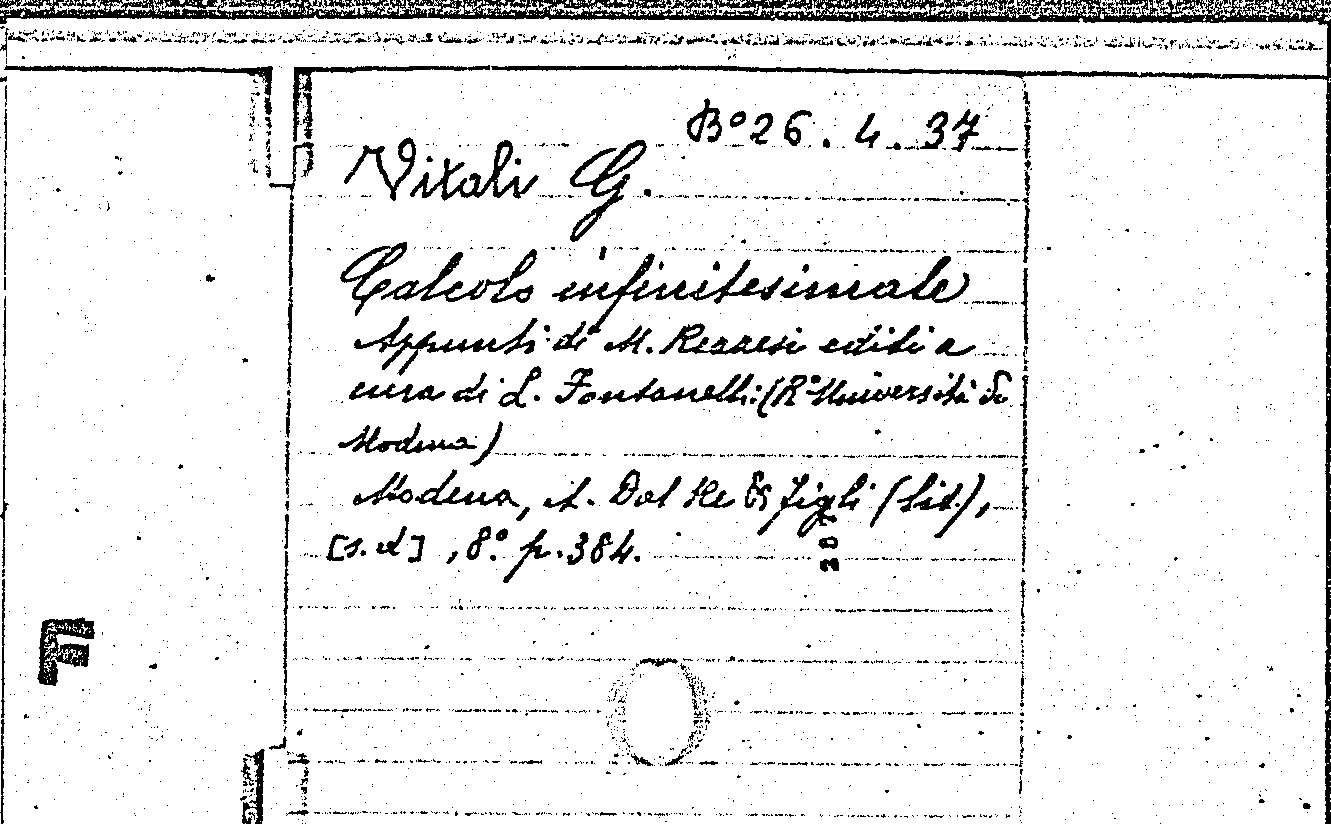 B° 26. 4. 37
Vitali G.
Calcolo infinitesimale
Appunti di M. Rezzesi editi a
cura di L. Fontanelli: (R° Università di
Modena)
Modena, A. Dal Re & figli (lit.),
[s. d], 8.° p. 384.
F